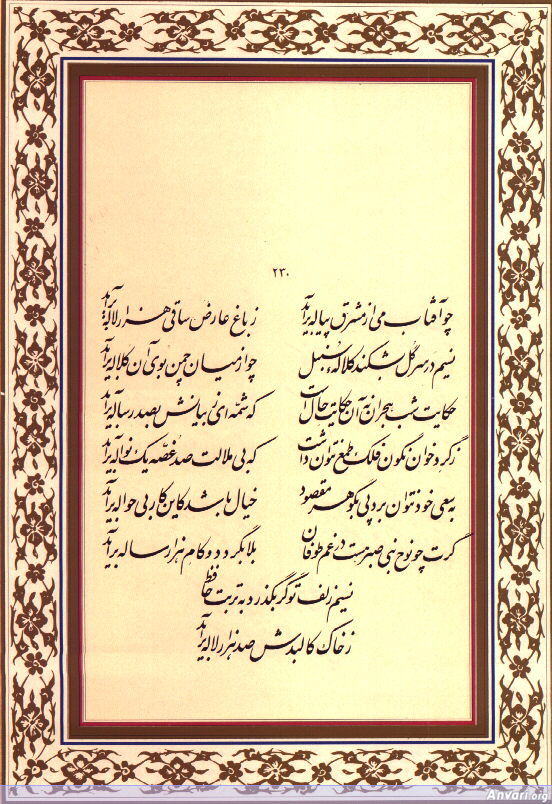 ۲۳۰
چو آفتاب می از مشرق پیاله برآید ز باغ عارض ساقی هزار لاله برآید
نسیم در سر گل بشکند کلاله سنبل چو از میان چمن بوی آن کلاله برآید
حکایت شب هجران نه آن حکایت حال است که شمه‌ای ز بیانش بصد رساله برآید
ز گرد خوان نگون فلک طمع نتوان داشت که بی ملالت صد غصه یک نواله برآید
به سعی خود نتوان برد پی بگوهر مقصود خیال باشد کاین کار بی حواله برآید
گرت چو نوح نبی صبر هست در غم طوفان بلا بگردد و کام هزار ساله برآید
نسیم زلف تو گر بگذرد به تربت حافظ
ز خاک کالبدش صد هزار لاله برآید
Anvari.org